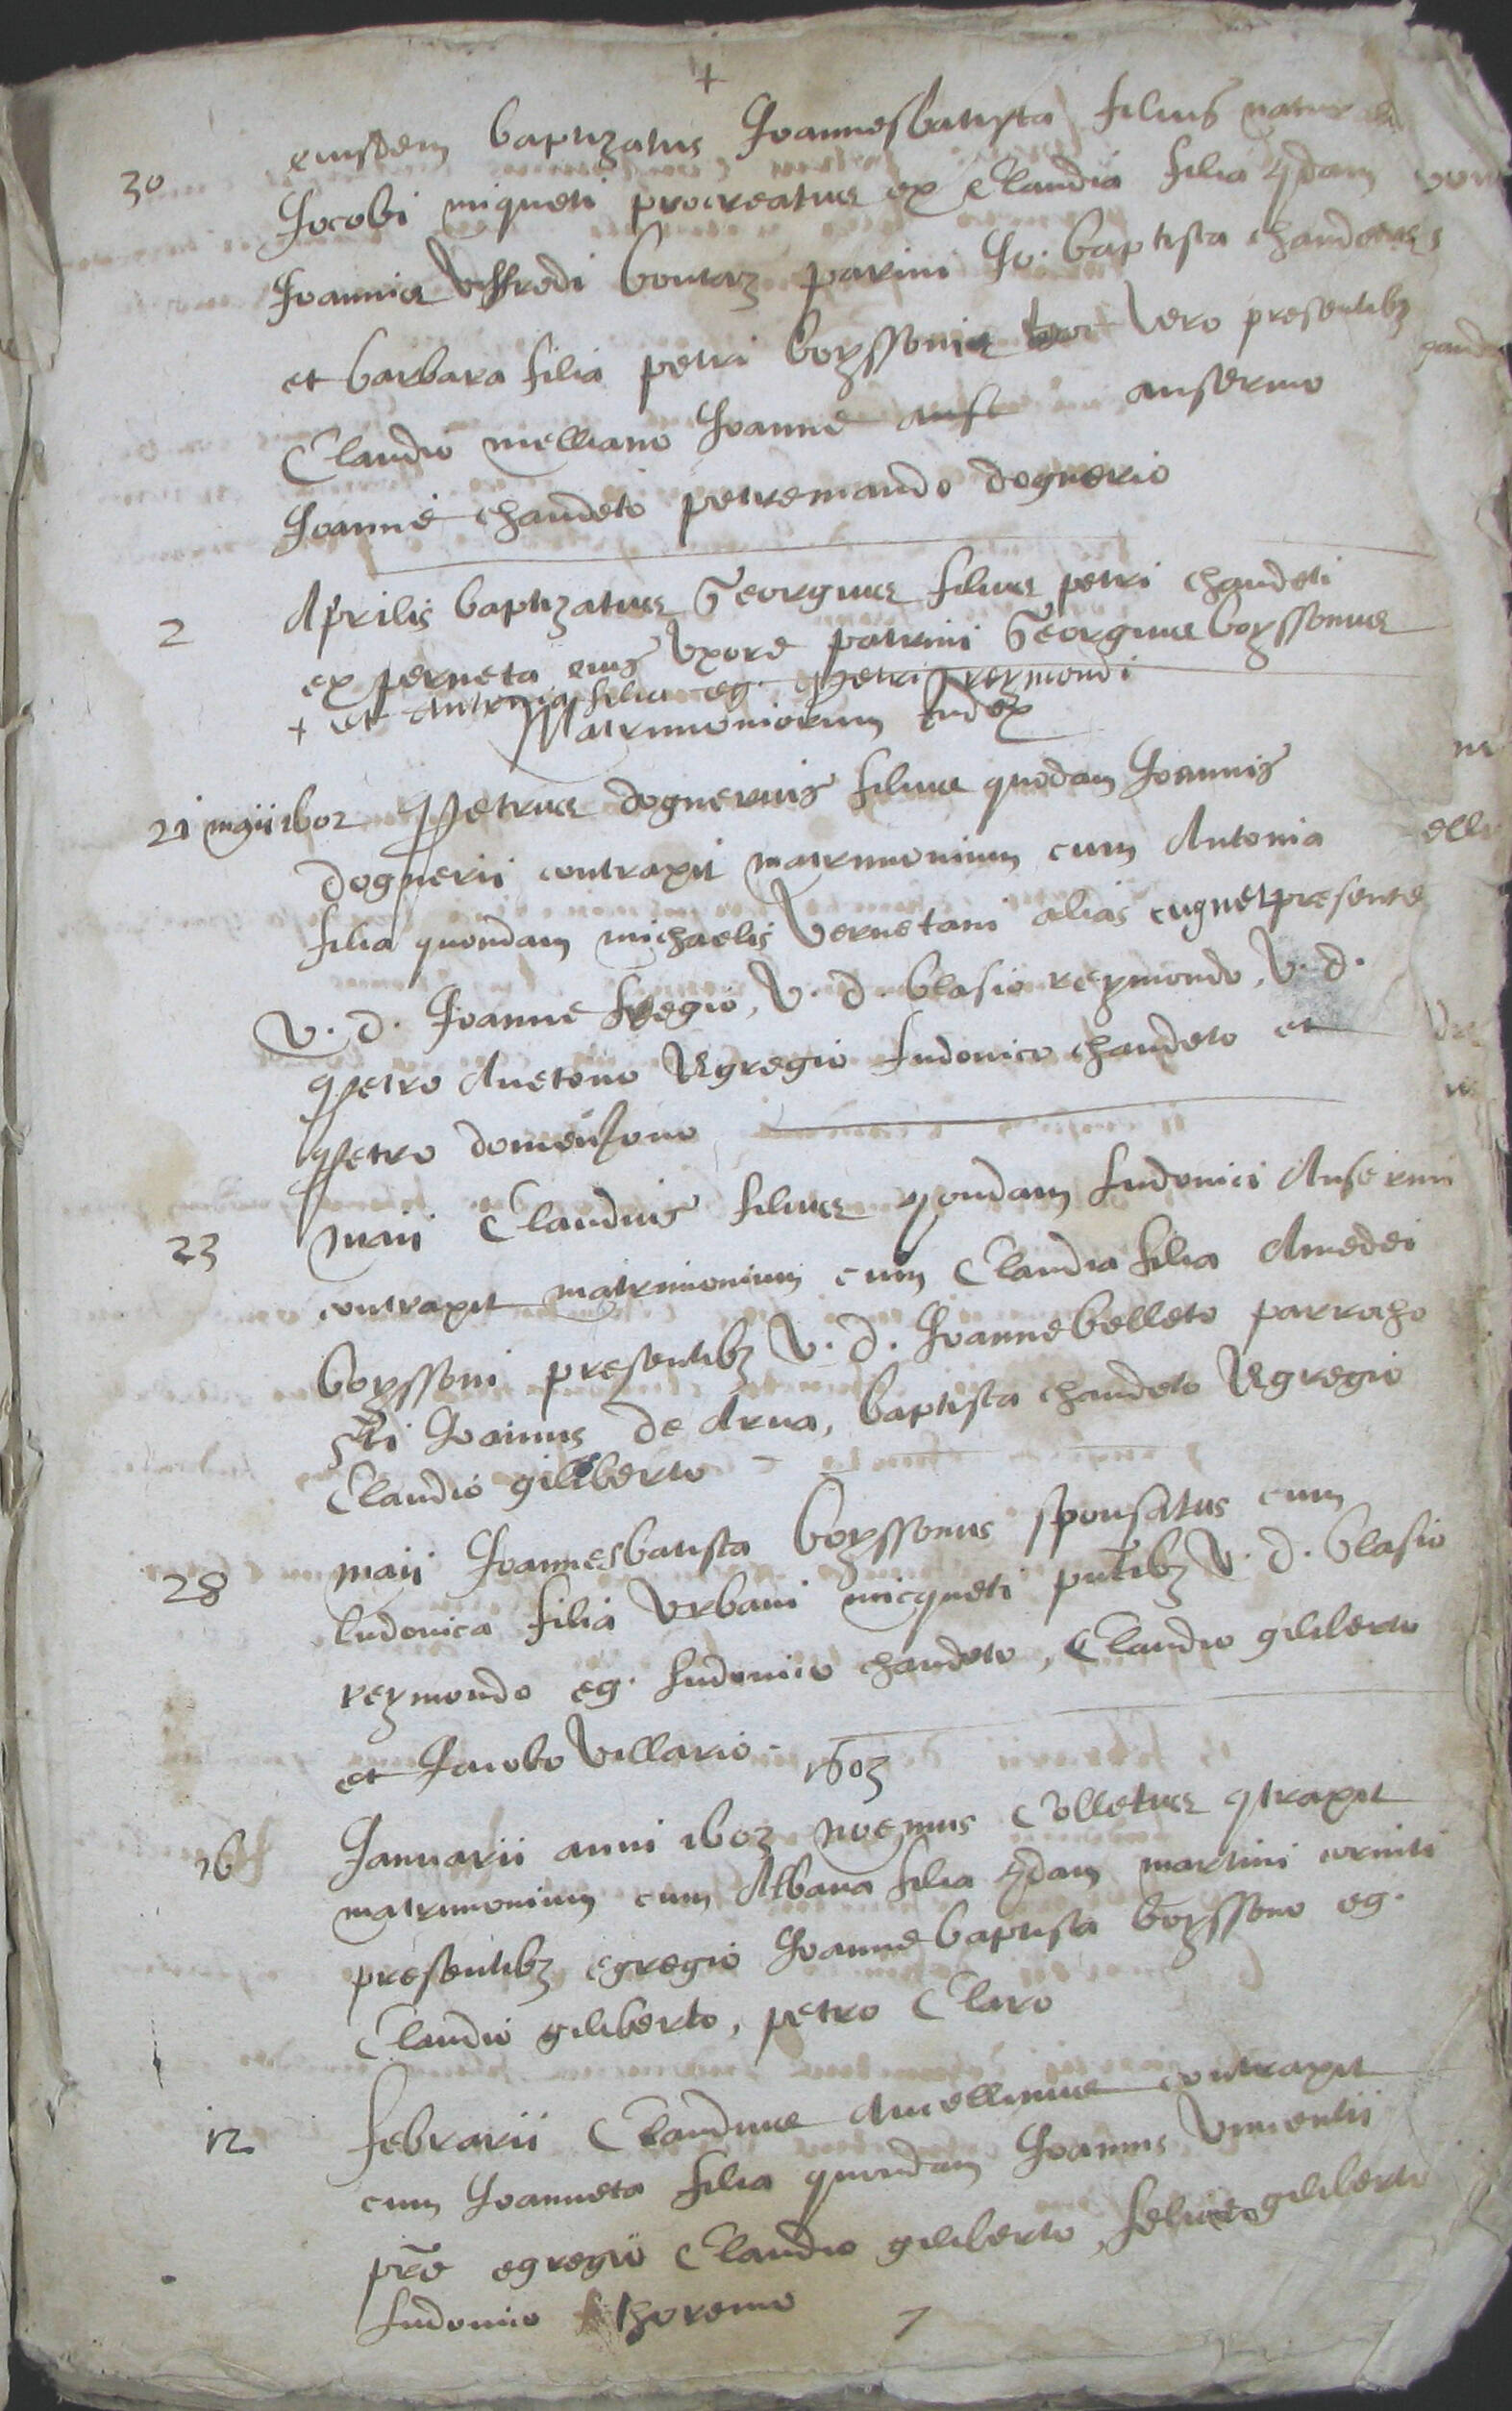 +
30 eiusdem baptizatus Joannesbatista filius natural
Jacobi miqueti procreatus ex Claudia filia qdam
Joannis Vffredi bontaz parini Jo. baptista chandetus
et barbara filia petri boyssonis hoc Vero presentibz
Claudio melliano Joanne ansermo
Joanne chandeto petremando dognerio
2 Aprilis baptizatus Georgius filius petri chandeti
ex perneta eius Vxore patrini Georgius boyssonus
+ et Antonia filia eg. petri reymondi
Matrimoniorum Index
21 maii 1602 Petrus dognerius filius quodam Joannis
dognerii contraxit matrimonium cum Antonia
filia quondam michaelis Vernetani alias cugnet presente
V. d. Joanne Regio, V. d. blasio reymondo, V. d.
Petro Anetono Egregio Ludovico chandeto et
Petro domenzono
23 maii Claudius filius quondam Ludovici Ansermi
contraxit matrimonium cum Claudia filia Amedei
boyssoni presentibz V. d. Joanne belleto parrocho
sti Joannis de Arua, baptista chandeto Egregio
Claudio giliberto
28 maii Joannesbatista boyssonus sponsatus cum
Ludovica filia Vrbani micqueti pntibz V. d. blasio
reymondo eg. Ludovico chandeto, Claudio giliberto
et Jacobo Villario
1603
16 Januarii anni 1603 noemus Colletus qtraxit
matrimonium cum Albana filia qdam martini corniti
presentibz egregio Joannebaptista boyssono eg.
Claudio giliberto, petro Claro
12 febrarii Claudius Auellinus contraxit
cum Joanneta filia quondam Joannis Vincentii
pnte egregio Claudio giliberto, felice giliberto
Ludovico thoremo